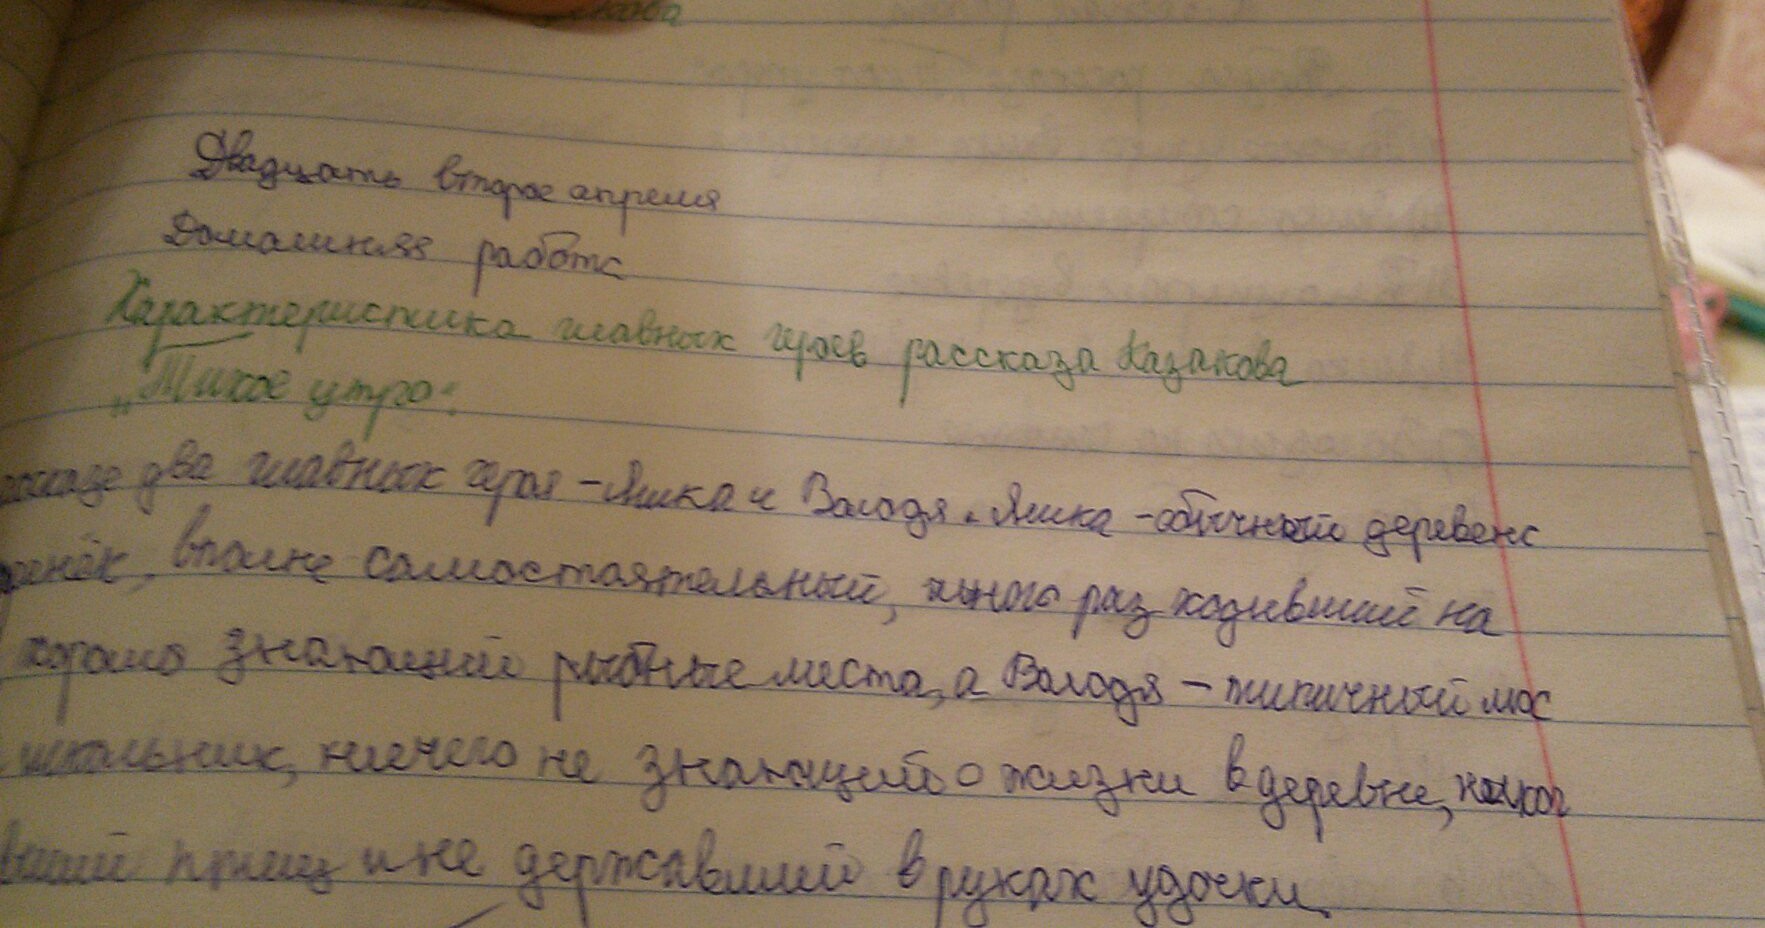 Двадцать второе апреля
Домашняя работа
Характеристика главных героев рассказа Казакова
„Тихое утро".
два главных героя - Яшка и Володя. Яшка - обычный деревенс
вполне самостоятельный, много раз ходивший на
хорошо знающий рыбные места, а Володя - типичный мос
школьник, ничего не знающий о жизни в деревне, никог
вший птиц и не державший в руках удочки